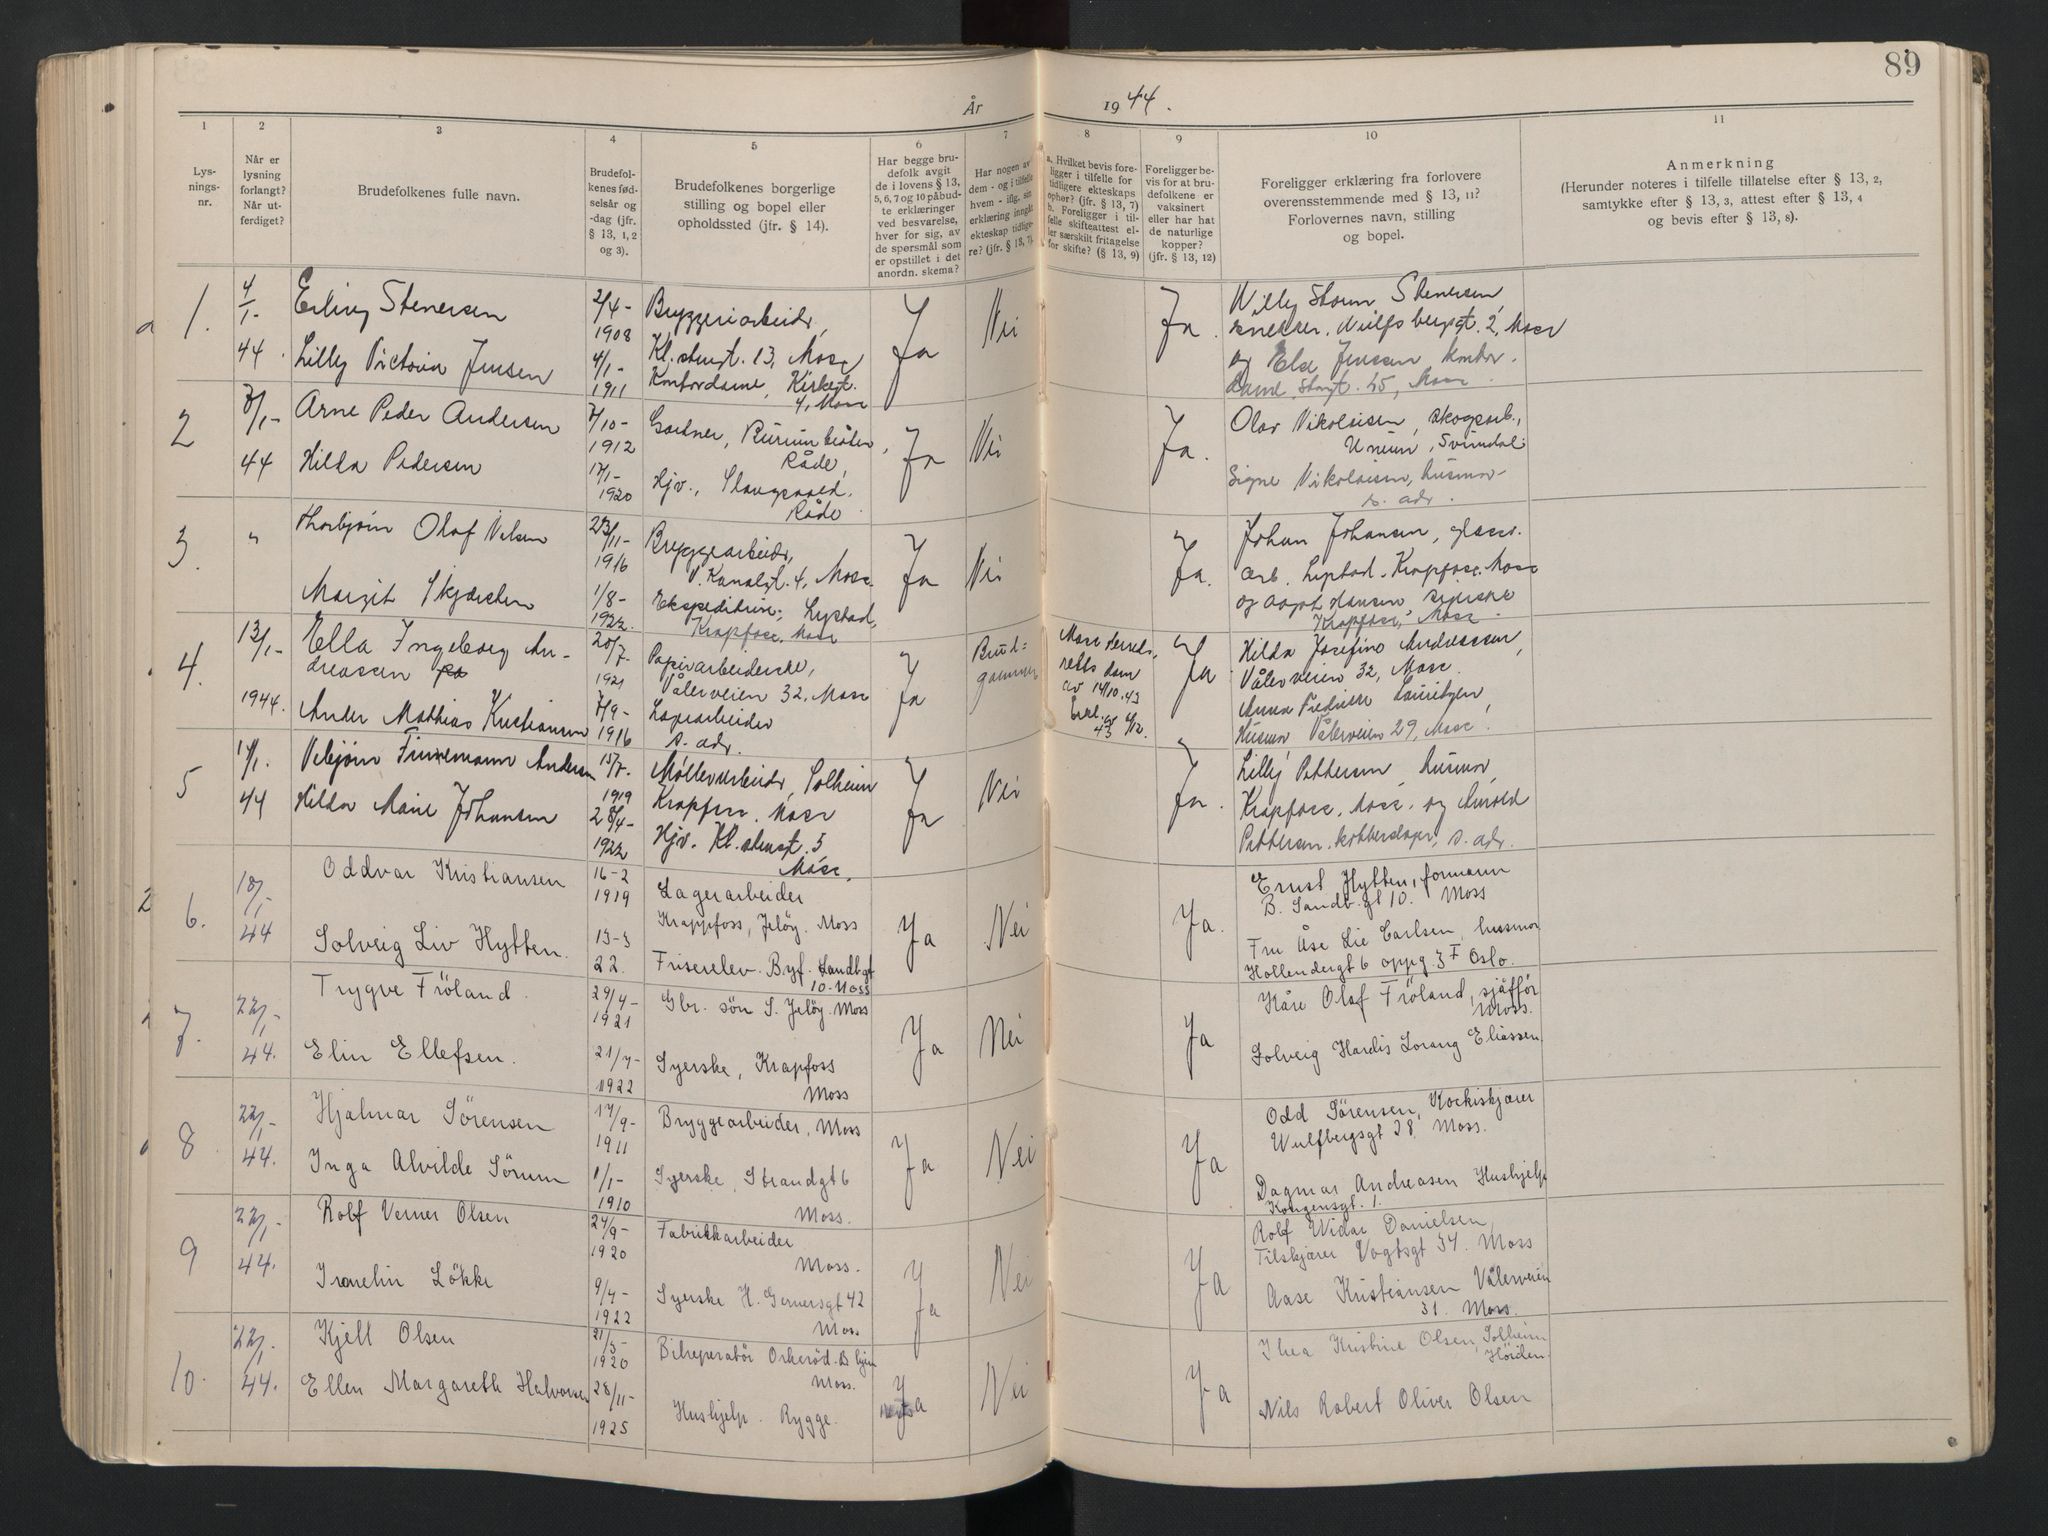 89
År 1944.
1
2
3
4
5
6
7
8
9
10
11
Lys-
nings-
nr.
Når er
lysning
forlangt?
Når ut-
ferdiget?
Brudefolkenes fulle navn.
Brudefol-
kenes fød-
selsår og
-dag (jfr.
§ 13, 1, 2
og 3).
Brudefolkenes borgerlige
stilling og bopel eller
opholdssted (jfr. § 14).
Har begge bru-
defolk avgit
de i lovens § 13,
5, 6, 7 og 10 påbud-
te erklæringer
ved besvarelse,
hver for sig, av
de spørsmål som
er opstillet i det
anordn. skema?
Har nogen av
dem - og i tilfelle
hvem - iflg. sin
erklæring inngått
ekteskap tidlige-
re? (jfr. § 13, 7).
a. Hvilket bevis fore-
ligger i tilfelle for
tidligere ekteskaps
ophør? (jfr. § 13, 7)
b. Foreligger i til-
felle skifteattest el-
ler særskilt fritagelse
for skifte? (§ 13, 9)
Foreligger be-
vis for at bru-
defolkene er
vaksinert
eller har hat
de naturlige
kopper?
(jfr. § 13, 12)
Foreligger erklæring fra forlovere
overensstemmende med § 13, 11?
Forlovernes navn, stilling
og bopel.
Anmerkning
(Herunder noteres i tilfelle tillatelse efter § 13, 2,
samtykke efter § 13, 3, attest efter § 13, 4
og bevis efter § 13, 8).
1.
4/1-
44.
Erling Stenersen
Lilly Victoria Jensen
2/4-
1908
4/1-
1911
Bryggeriarbeider,
Kl. strengt. 13, Moss
Kontordame, Kirkegt.
4, Moss
Ja
Nei
Ja.
Willy Storm Stenersen,
snekker, Wulfsbergsgt. 2, Moss
og Else Jenssen, kontor-
dame, Storgt. 45, Moss.
2
7/1-
44
Arne Peder Andersen
Hilda Pedersen
7/10-
1912
17/1-
1920
Gartner,
Råde,
Hjv.,
Råde
Ja
Nei
Ja.
Olav Nikolaisen, skogsarb.,
Unum, Svindal
Signe Nikolaisen, husmor
s. adr.
3.
"
Thorbjörn Olaf Nilsen
Margit Skjærsten
23/11-
1916
1/8-
1922.
Bryggearbeider,
V. Kanalgt. 4, Moss.
Ekspeditrise,
Krapfoss, Moss
Ja
Nei
Ja.
Johan Johansen, glass-
arb. Krapfoss, Moss
og Hansen, syerske
Krapfoss, Moss.
4.
13/1-
1944.
Ella Ingeborg An-
dreassen
Ander Mathias Kristiansen
20/7-
1921
7/9-
1916
Papirarbeiderske,
Vålerveien 32, Moss
Lagerarbeider
s. adr.
Ja
Brud-
gommen
Moss herreds-
retts dom
av 14/10.43
Erkl. av 6/12.
43
Ja
Hilda Josefine Andreassen,
Vålerveien 32, Moss.
Anna Fredrikke Lauritzen,
Husmor Vålerveien 29, Moss.
5
17/1.
44
Vebjörn Finnemann Andersen
Hilda Marie Johansen
15/7-
1919
28/4-
1922
Möllerarbeider, Solheim
Krapfoss, Moss
Hjv. Kl. strengt. 5
Moss.
Ja
Nei
Ja.
Lilly Pettersen, husmor,
Krapfoss, Moss, og Arnold
Pettersen, kobberslager, s. adr.
6.
18/1-
44
Oddvar Kristiansen
Solveig Liv Hytten.
16-2
1919
13-3
22.
Lagerarbeider
Krappfoss, Jelöy. Moss
Friserelev. Byf. Sandbgt
10. Moss
Ja
Nei
Ja.
Ernst Hytten, formann
B. Sandb.gt 10. Moss
Fru Åse Lie Carlsen, husmor
Hollendergt 6 oppg. 3 F Oslo.
7.
22/1-
44.
Trygve Fröland.
Elin Ellefsen.
29/4-
1921
21/7-
1922
Gbr. sön S. Jelöy. Moss
Syerske, Krapfoss
Moss
Ja
Nei
Ja
Kåre Olaf Fröland, sjåfför
Moss.
Solveig Hardis Lorang Eliassen
8
22/1-
44.
Hjalmar Sörensen
Inga Alvilde Sörum
17/9-
1911
1/1-
1910
Bryggearbeider, Moss
Syerske, Strandgt 6
Moss.
Ja
Nei
Ja
Odd Sörensen,
Wulfbergsgt 28. Moss.
Dagmar Andreasen Hushjelp
Kongensgt. 1.
9
22/1-
44.
Rolf Verner Olsen
Irmelin Lökke
24/9-
1920
9/4-
1922
Fabrikkarbeider
Moss.
Syerske H. Gernersgt 42
Moss
Ja
Nei
Ja
Rolf Widar Danielsen,
Tilskjærer Vogtsgt 34. Moss
Aase Kristiansen Vålerveien
31. Moss.
10.
22/1-
44.
Kjell Olsen
Ellen Margareth Halvorsen
21/5-
1920
28/11-
1925
Bilreperatör Orkeröd.
Moss.
Hushjelp. Rygge.
Ja
Nei
Ja
Thea Kristine Olsen, Solheim
Nils Robert Oliver Olsen